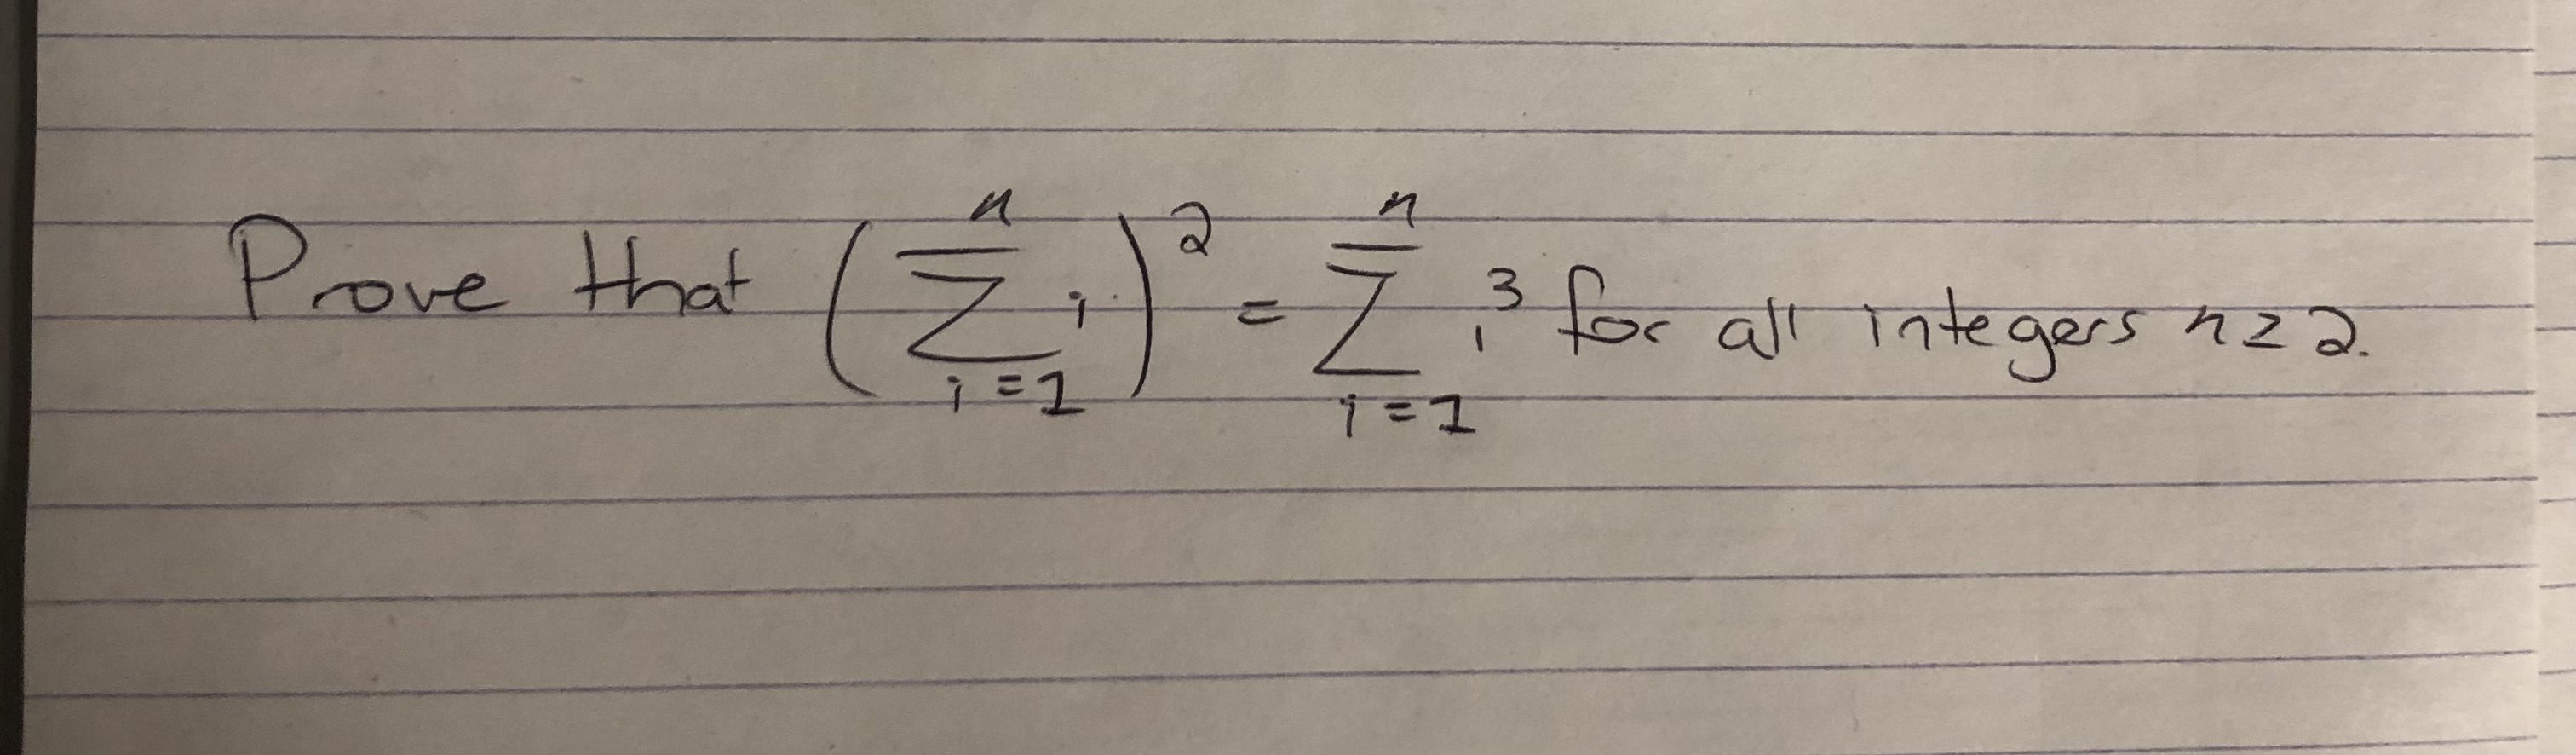 Prove that (∑_{i=1}^{n} i)^2 = ∑_{i=1}^{n} i^3 for all integers n ≥ 2.